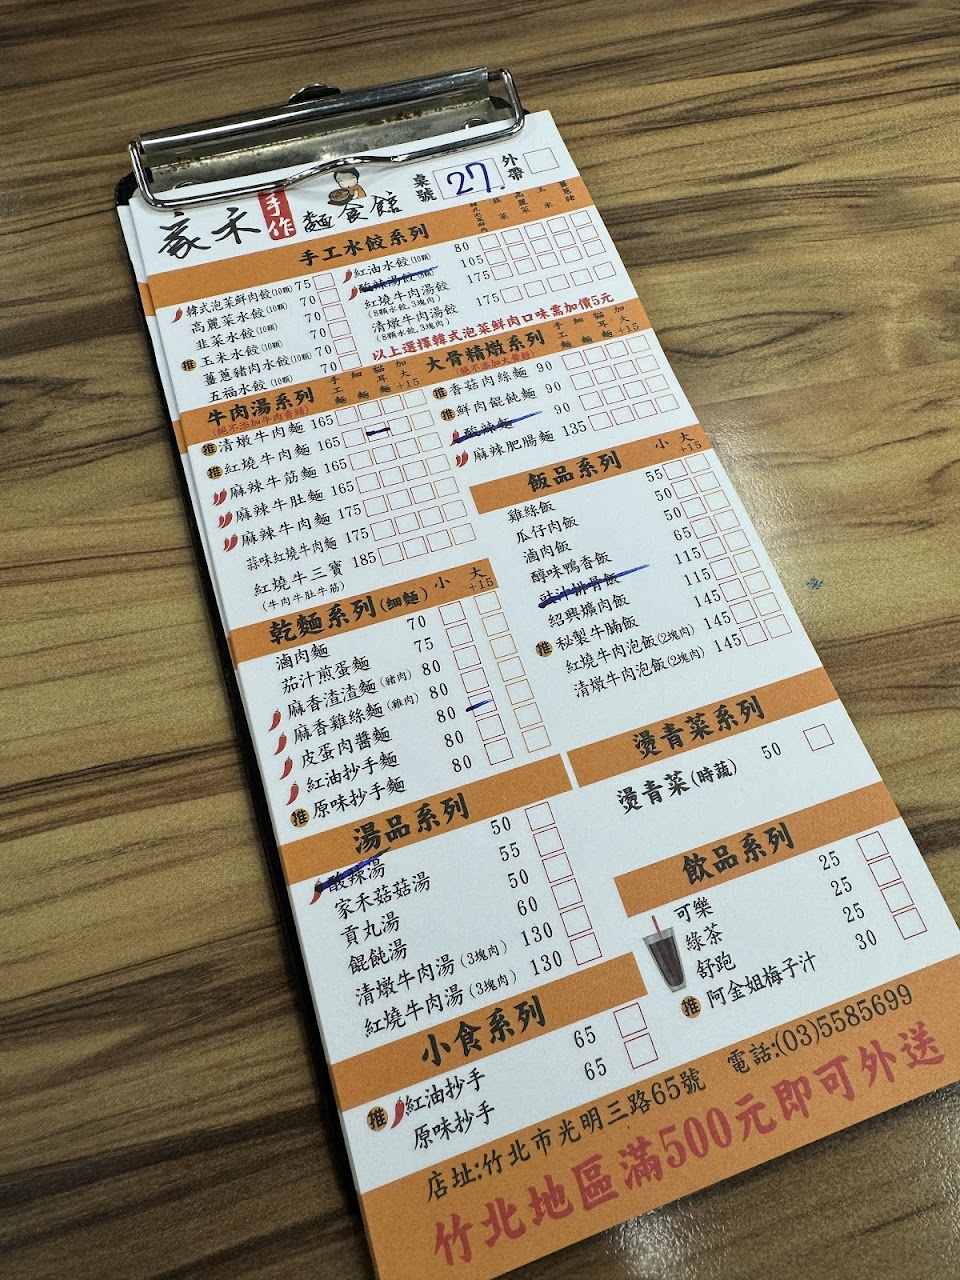 家禾 手作 麵食館 桌號 27 外帶
手工水餃系列
韓式泡菜鮮肉 韭菜 高麗菜 玉米 薑蔥豬
韓式泡菜鮮肉餃(10顆) 75
高麗菜水餃(10顆) 70
韭菜水餃(10顆) 70
推 玉米水餃(10顆) 70
薑蔥豬肉水餃(10顆) 70
五福水餃(10顆)
紅油水餃(10顆) 80
酸辣湯餃(8顆) 105
紅燒牛肉湯餃 175
(8顆水餃,3塊肉)
清燉牛肉湯餃 175
(8顆水餃,3塊肉)
以上選擇韓式泡菜鮮肉口味需加價5元
牛肉湯系列
(絕不添加牛肉香精)
手工麵 細麵 貓耳麵 加大+15
推 清燉牛肉麵 165
推 紅燒牛肉麵 165
麻辣牛筋麵 165
麻辣牛肚麵 165
麻辣牛肉麵 175
蒜味紅燒牛肉麵 175
紅燒牛三寶 185
(牛肉牛肚牛筋)
大骨精燉系列
(絕不添加大骨粉)
手工麵 細麵 貓耳麵 加大+15
推 香菇肉絲麵 90
推 鮮肉餛飩麵 90
酸辣麵 90
麻辣肥腸麵 135
飯品系列
小 大+15
雞絲飯 55
瓜仔肉飯 50
滷肉飯 50
醇味鴨香飯 65
豉汁排骨飯 115
紹興爌肉飯 115
推 秘製牛腩飯 145
紅燒牛肉泡飯(2塊肉) 145
清燉牛肉泡飯(2塊肉) 145
乾麵系列(細麵)
小 大+15
滷肉麵 70
茄汁煎蛋麵 75
麻香渣渣麵(豬肉) 80
麻香雞絲麵(雞肉) 80
皮蛋肉醬麵 80
紅油抄手麵 80
推 原味抄手麵 80
燙青菜系列
燙青菜(時蔬) 50
湯品系列
酸辣湯 50
家禾菇菇湯 55
貢丸湯 50
餛飩湯 60
清燉牛肉湯(3塊肉) 130
紅燒牛肉湯(3塊肉) 130
飲品系列
可樂 25
綠茶 25
舒跑 25
推 阿金姐梅子汁 30
小食系列
推 紅油抄手 65
原味抄手 65
店址:竹北市光明三路65號 電話:(03)5585699
竹北地區滿500元即可外送